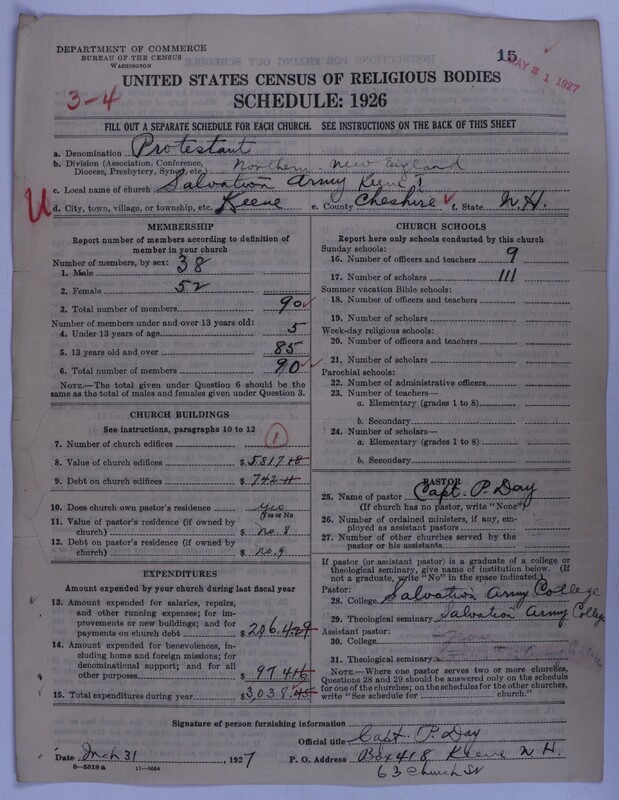 DEPARTMENT OF COMMERCE
BUREAU OF THE CENSUS
WASHINGTON
15
MAY 21 1927
UNITED STATES CENSUS OF RELIGIOUS BODIES
3-4
SCHEDULE: 1926
FILL OUT A SEPARATE SCHEDULE FOR EACH CHURCH. SEE INSTRUCTIONS ON THE BACK OF THIS SHEET
a. Denomination Protestant
b. Division (Association, Conference, Diocese, Presbytery, Synod, etc.) Northern New England
c. Local name of church Salvation Army Keene
U
d. City, town, village, or township, etc. Keene e. County Cheshire f. State N.H.
MEMBERSHIP
Report number of members according to definition of
member in your church
Number of members, by sex:
1. Male 38
2. Female 52
3. Total number of members 90
Number of members under and over 13 years old:
4. Under 13 years of age 5
5. 13 years old and over 85
6. Total number of members 90
NOTE.—The total given under Question 6 should be the
same as the total of males and females given under Question 3.
CHURCH BUILDINGS
See instructions, paragraphs 10 to 12
7. Number of church edifices 1
8. Value of church edifices $5817.18
9. Debt on church edifices $742.11
10. Does church own pastor's residence yes
(Yes or No)
11. Value of pastor's residence (if owned by
church) $ no. 8
12. Debt on pastor's residence (if owned by
church) $ no. 9
EXPENDITURES
Amount expended by your church during last fiscal year
13. Amount expended for salaries, repairs,
and other running expenses; for im-
provements or new buildings; and for
payments on church debt $ 2
14. Amount expended for benevolences, in-
cluding home and foreign missions; for
denominational support; and for all
other purposes $ 974.16
15. Total expenditures during year $3,038.45
CHURCH SCHOOLS
Report here only schools conducted by this church
Sunday schools:
16. Number of officers and teachers 9
17. Number of scholars 111
Summer vacation Bible schools:
18. Number of officers and teachers
19. Number of scholars
Week-day religious schools:
20. Number of officers and teachers
21. Number of scholars
Parochial schools:
22. Number of administrative officers
23. Number of teachers—
a. Elementary (grades 1 to 8)
b. Secondary
24. Number of scholars—
a. Elementary (grades 1 to 8)
b. Secondary
PASTOR
25. Name of pastor Capt. P. Day
(If church has no pastor, write "None")
26. Number of ordained ministers, if any, em-
ployed as assistant pastors
27. Number of other churches served by the
pastor or his assistants
If pastor (or assistant pastor) is a graduate of a college or
theological seminary, give name of institution below. (If
not a graduate, write "No" in the space indicated.)
Pastor:
28. College Salvation Army College
29. Theological seminary Salvation Army College
Assistant pastor:
30. College
31. Theological seminary
NOTE.—Where one pastor serves two or more churches,
Questions 28 and 29 should be answered only on the schedule
for one of the churches; on the schedules for the other churches,
write "See schedule for church."
Signature of person furnishing information
Official title Capt. P. Day
Date Mch 31, 1927 P. O. Address Box 418 Keene N.H.
8-5518a 11-9054
63 Church St